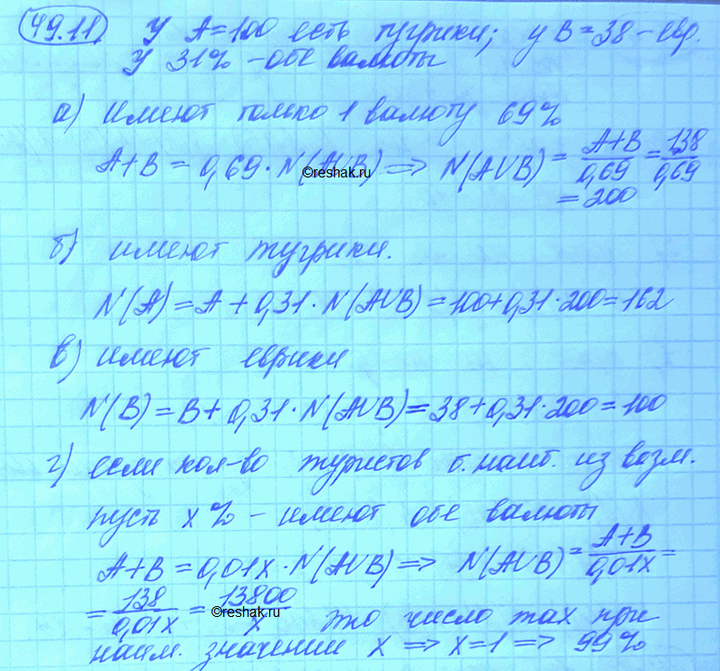 49.11. У A=100 есть тугрики; у B=38 – евр.
У 31% – обе валюты
а) имеют только 1 валюту 69%
A+B = 0,69·N(A∪B) ⟹ N(A∪B) = (A+B)/0,69 = 138/0,69
= 200
©reshak.ru
б) имеют тугрики.
N(A) = A + 0,31·N(A∪B) = 100+0,31·200 = 162
в) имеют еврики
N(B) = B + 0,31·N(A∪B) = 38+0,31·200 = 100
г) если кол-во туристов б. наиб. из возм.
пусть x% – имеют обе валюты
A+B = 0,01x·N(A∪B) ⟹ N(A∪B) = (A+B)/0,01x =
= 138/0,01x = 13800/x это число max при
©reshak.ru
наим. значении x ⟹ x=1 ⟹ 99%